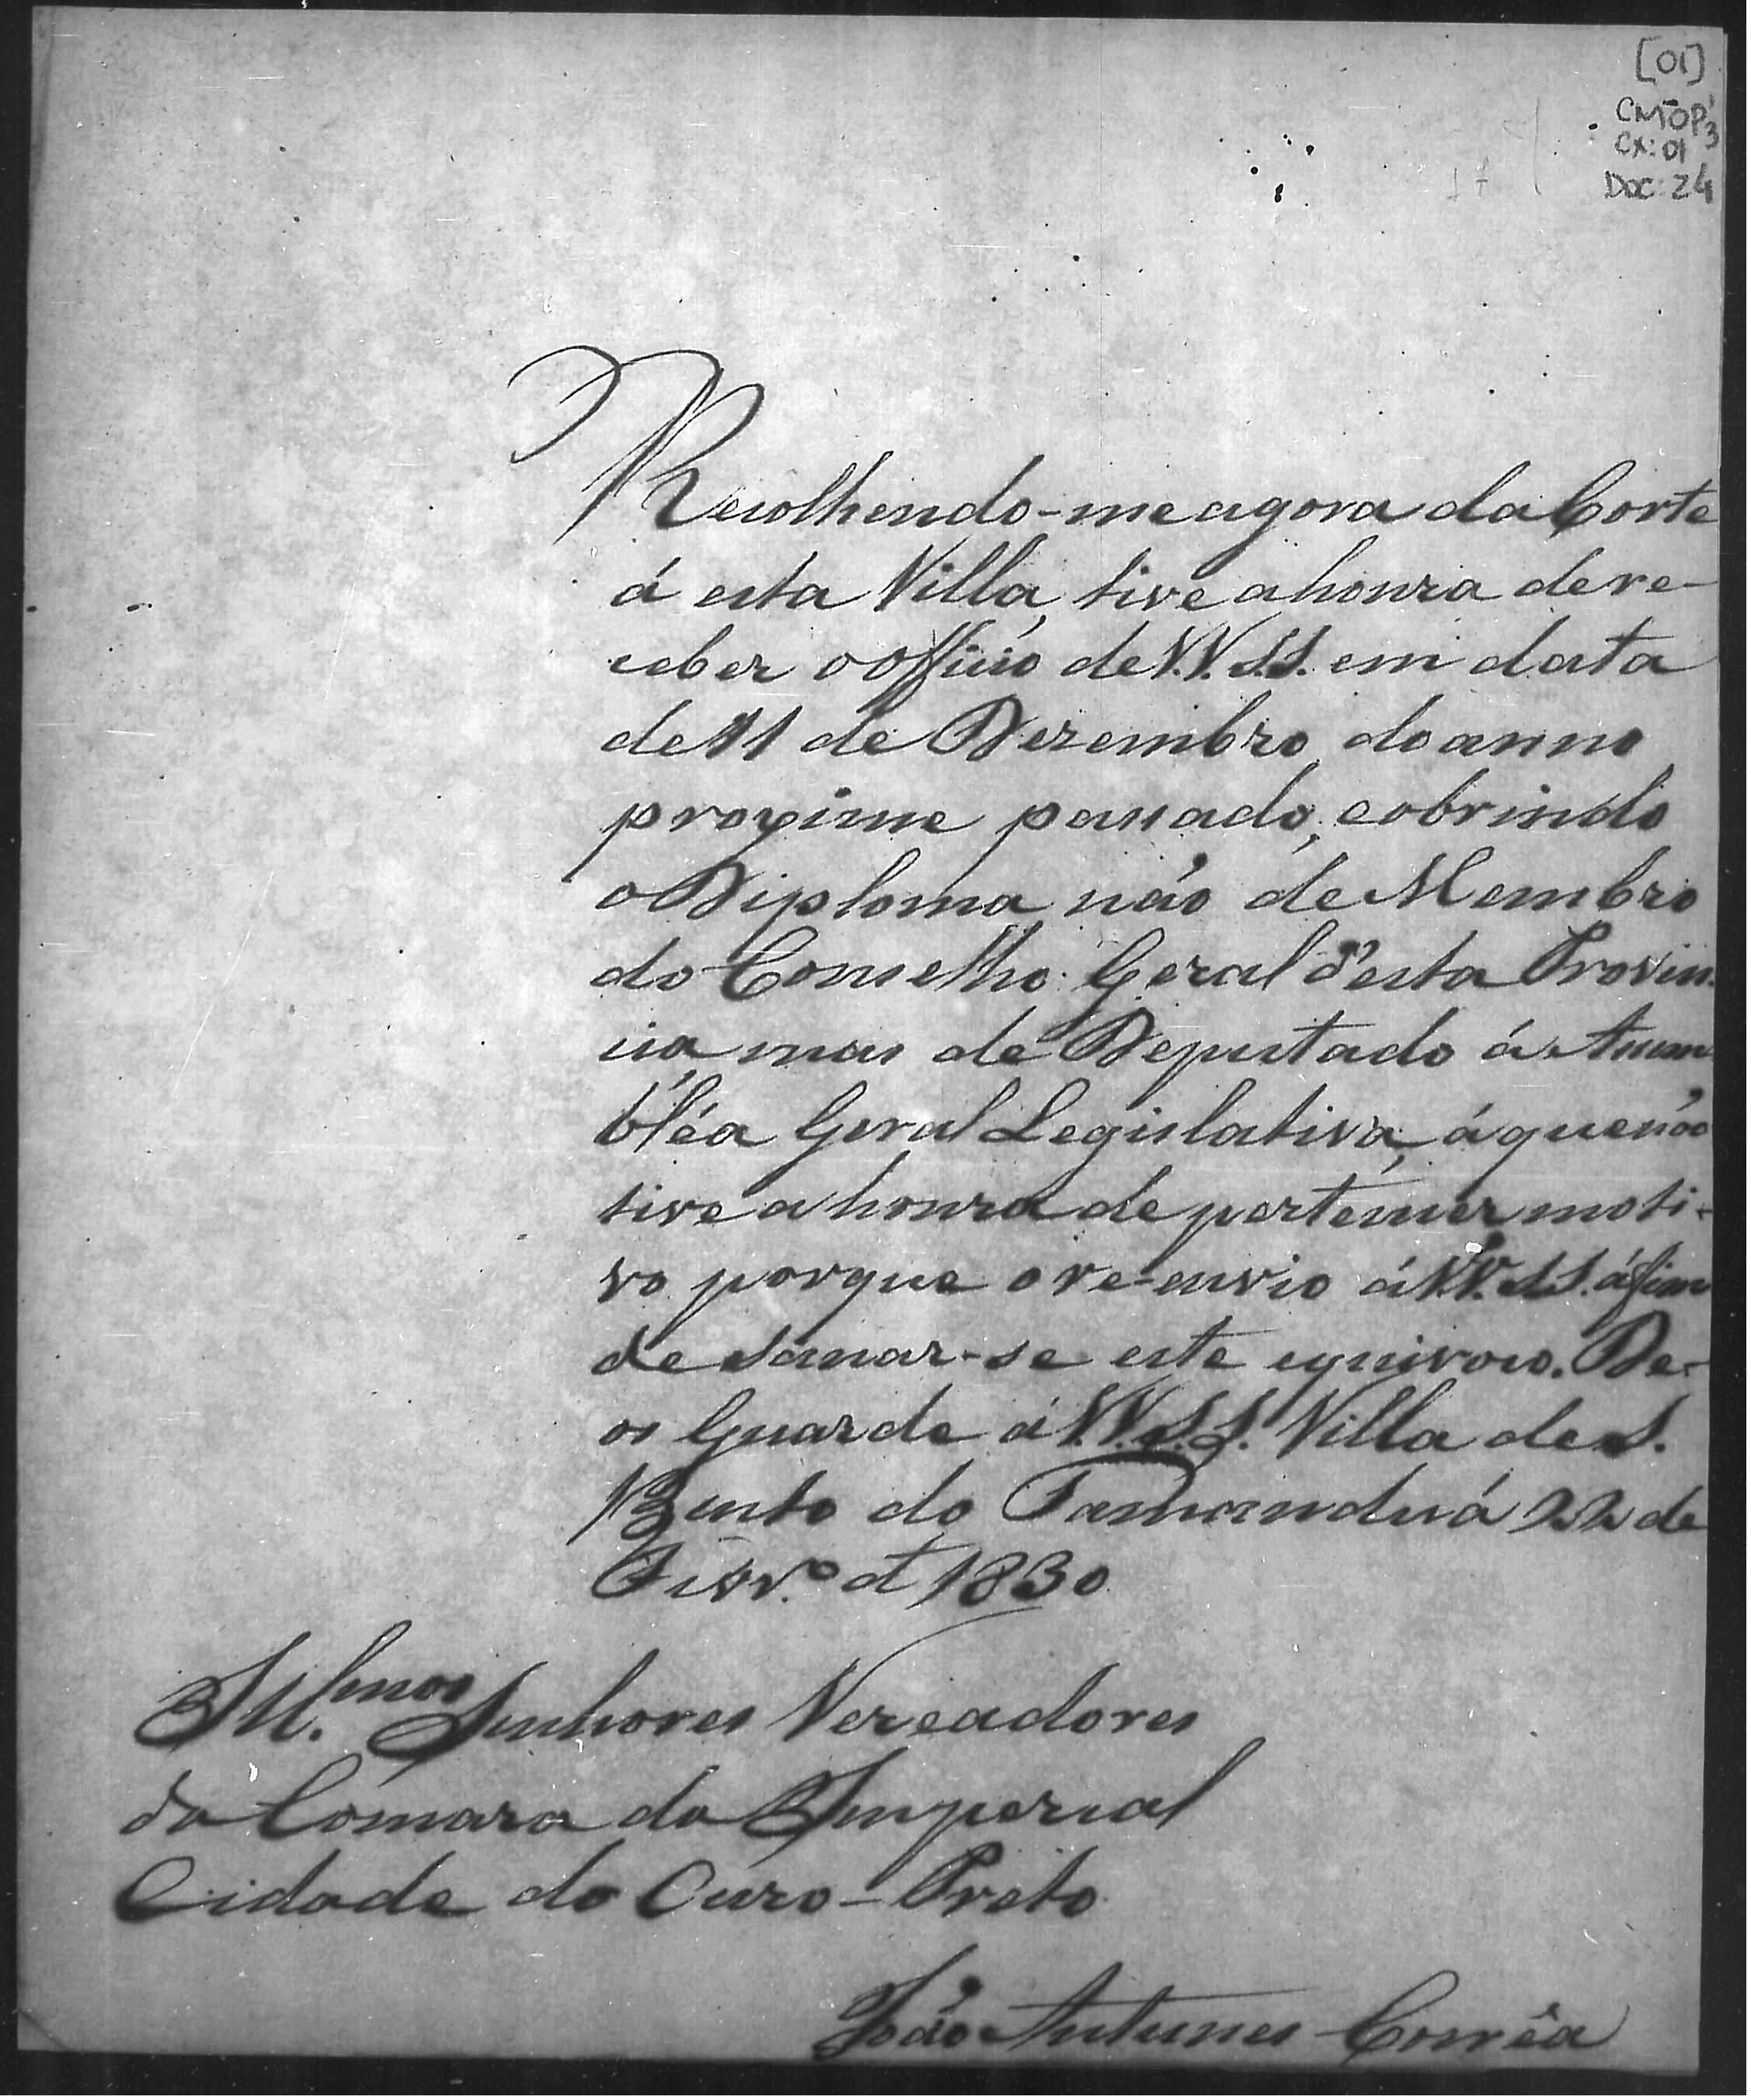 [01]
CMOP3
CX: 01
DOC: 24
Recolhendo-me agora da Corte
á esta Villa, tive a honra de re-
ceber o officio de V.V. S.S. em data
de 11 de Dezembro do anno
proximo passado, cobrindo
o Diploma, não de Membro
do Conselho Geral d'esta Provin-
cia, mas de Deputado á Assem
bléa Geral Legislativa, á que não
tive a honra de pertencer moti-
vo porque o re-envio á V.V. S.S. á fim
de sanar-se este equivoco. De-
os Guarde á V.V. S.S. Villa de S.
Bento do Tamanduá 22 de
Fevr.º d 1830
Ill.mos Senhores Vereadores
da Camara da Imperial
Cidade do Ouro-Preto
João Antunes Corrêa